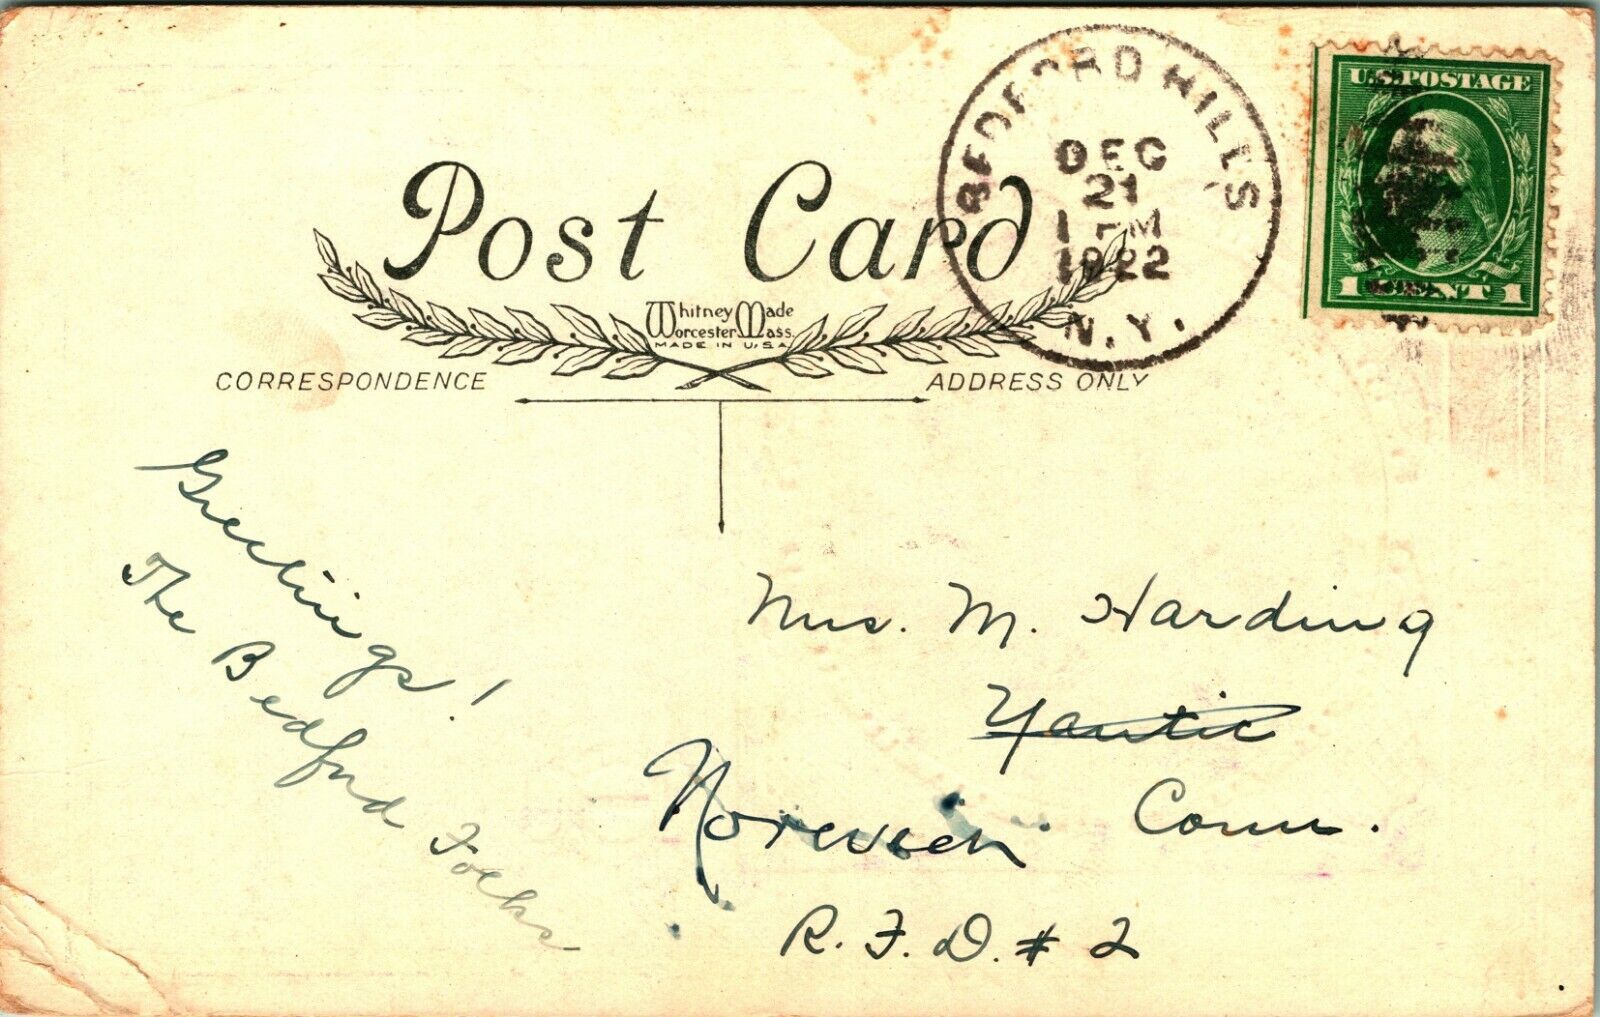 Post Card
Whitney Made
Worcester Mass.
MADE IN U.S.A.
CORRESPONDENCE
ADDRESS ONLY
BEDFORD HILLS
DEC
21
1 PM
1922
N.Y.
U.S. POSTAGE
1 CENT 1
Greetings!
The Bedford Folks
Mrs. M. Harding
Yantic
Norwich Conn.
R.F.D. # 2